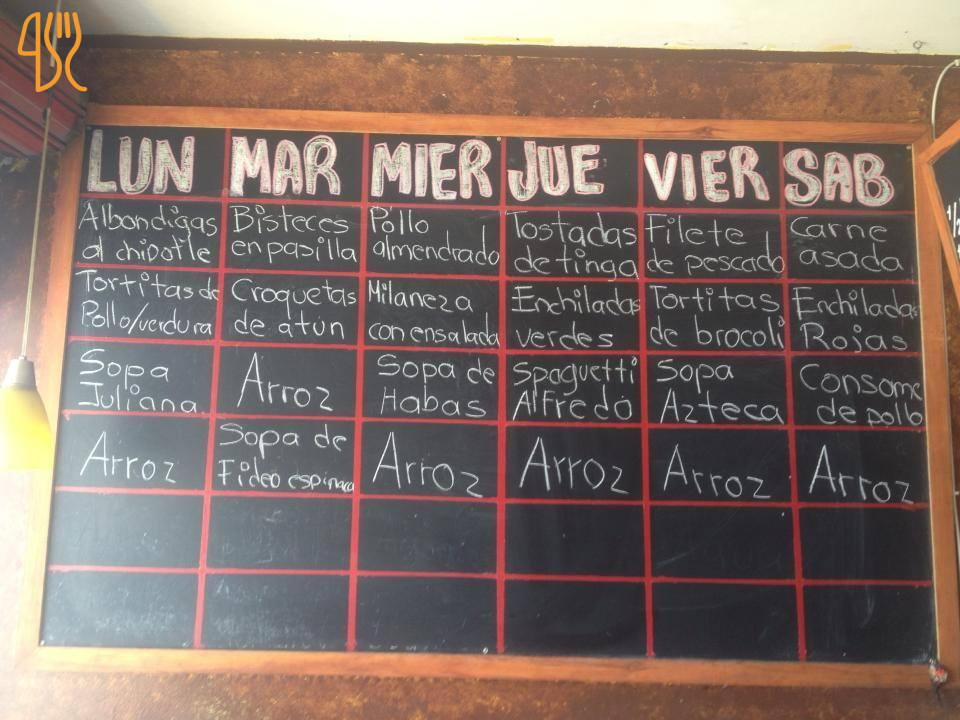 LUN MAR MIER JUE VIER SAB
Albondigas Bisteces Pollo Tostadas Filete Carne
al chipotle en pasilla almendrado de tinga de pescado asada
Tortitas de Croquetas Milaneza Enchiladas Tortitas Enchiladas
Pollo/verdura de atun con ensalada verdes de brocoli Rojas
Sopa Arroz Sopa de Spaguetti Sopa Consome
Juliana Habas Alfredo Azteca de pollo
Arroz Sopa de Arroz Arroz Arroz Arroz
Fideo espinaca